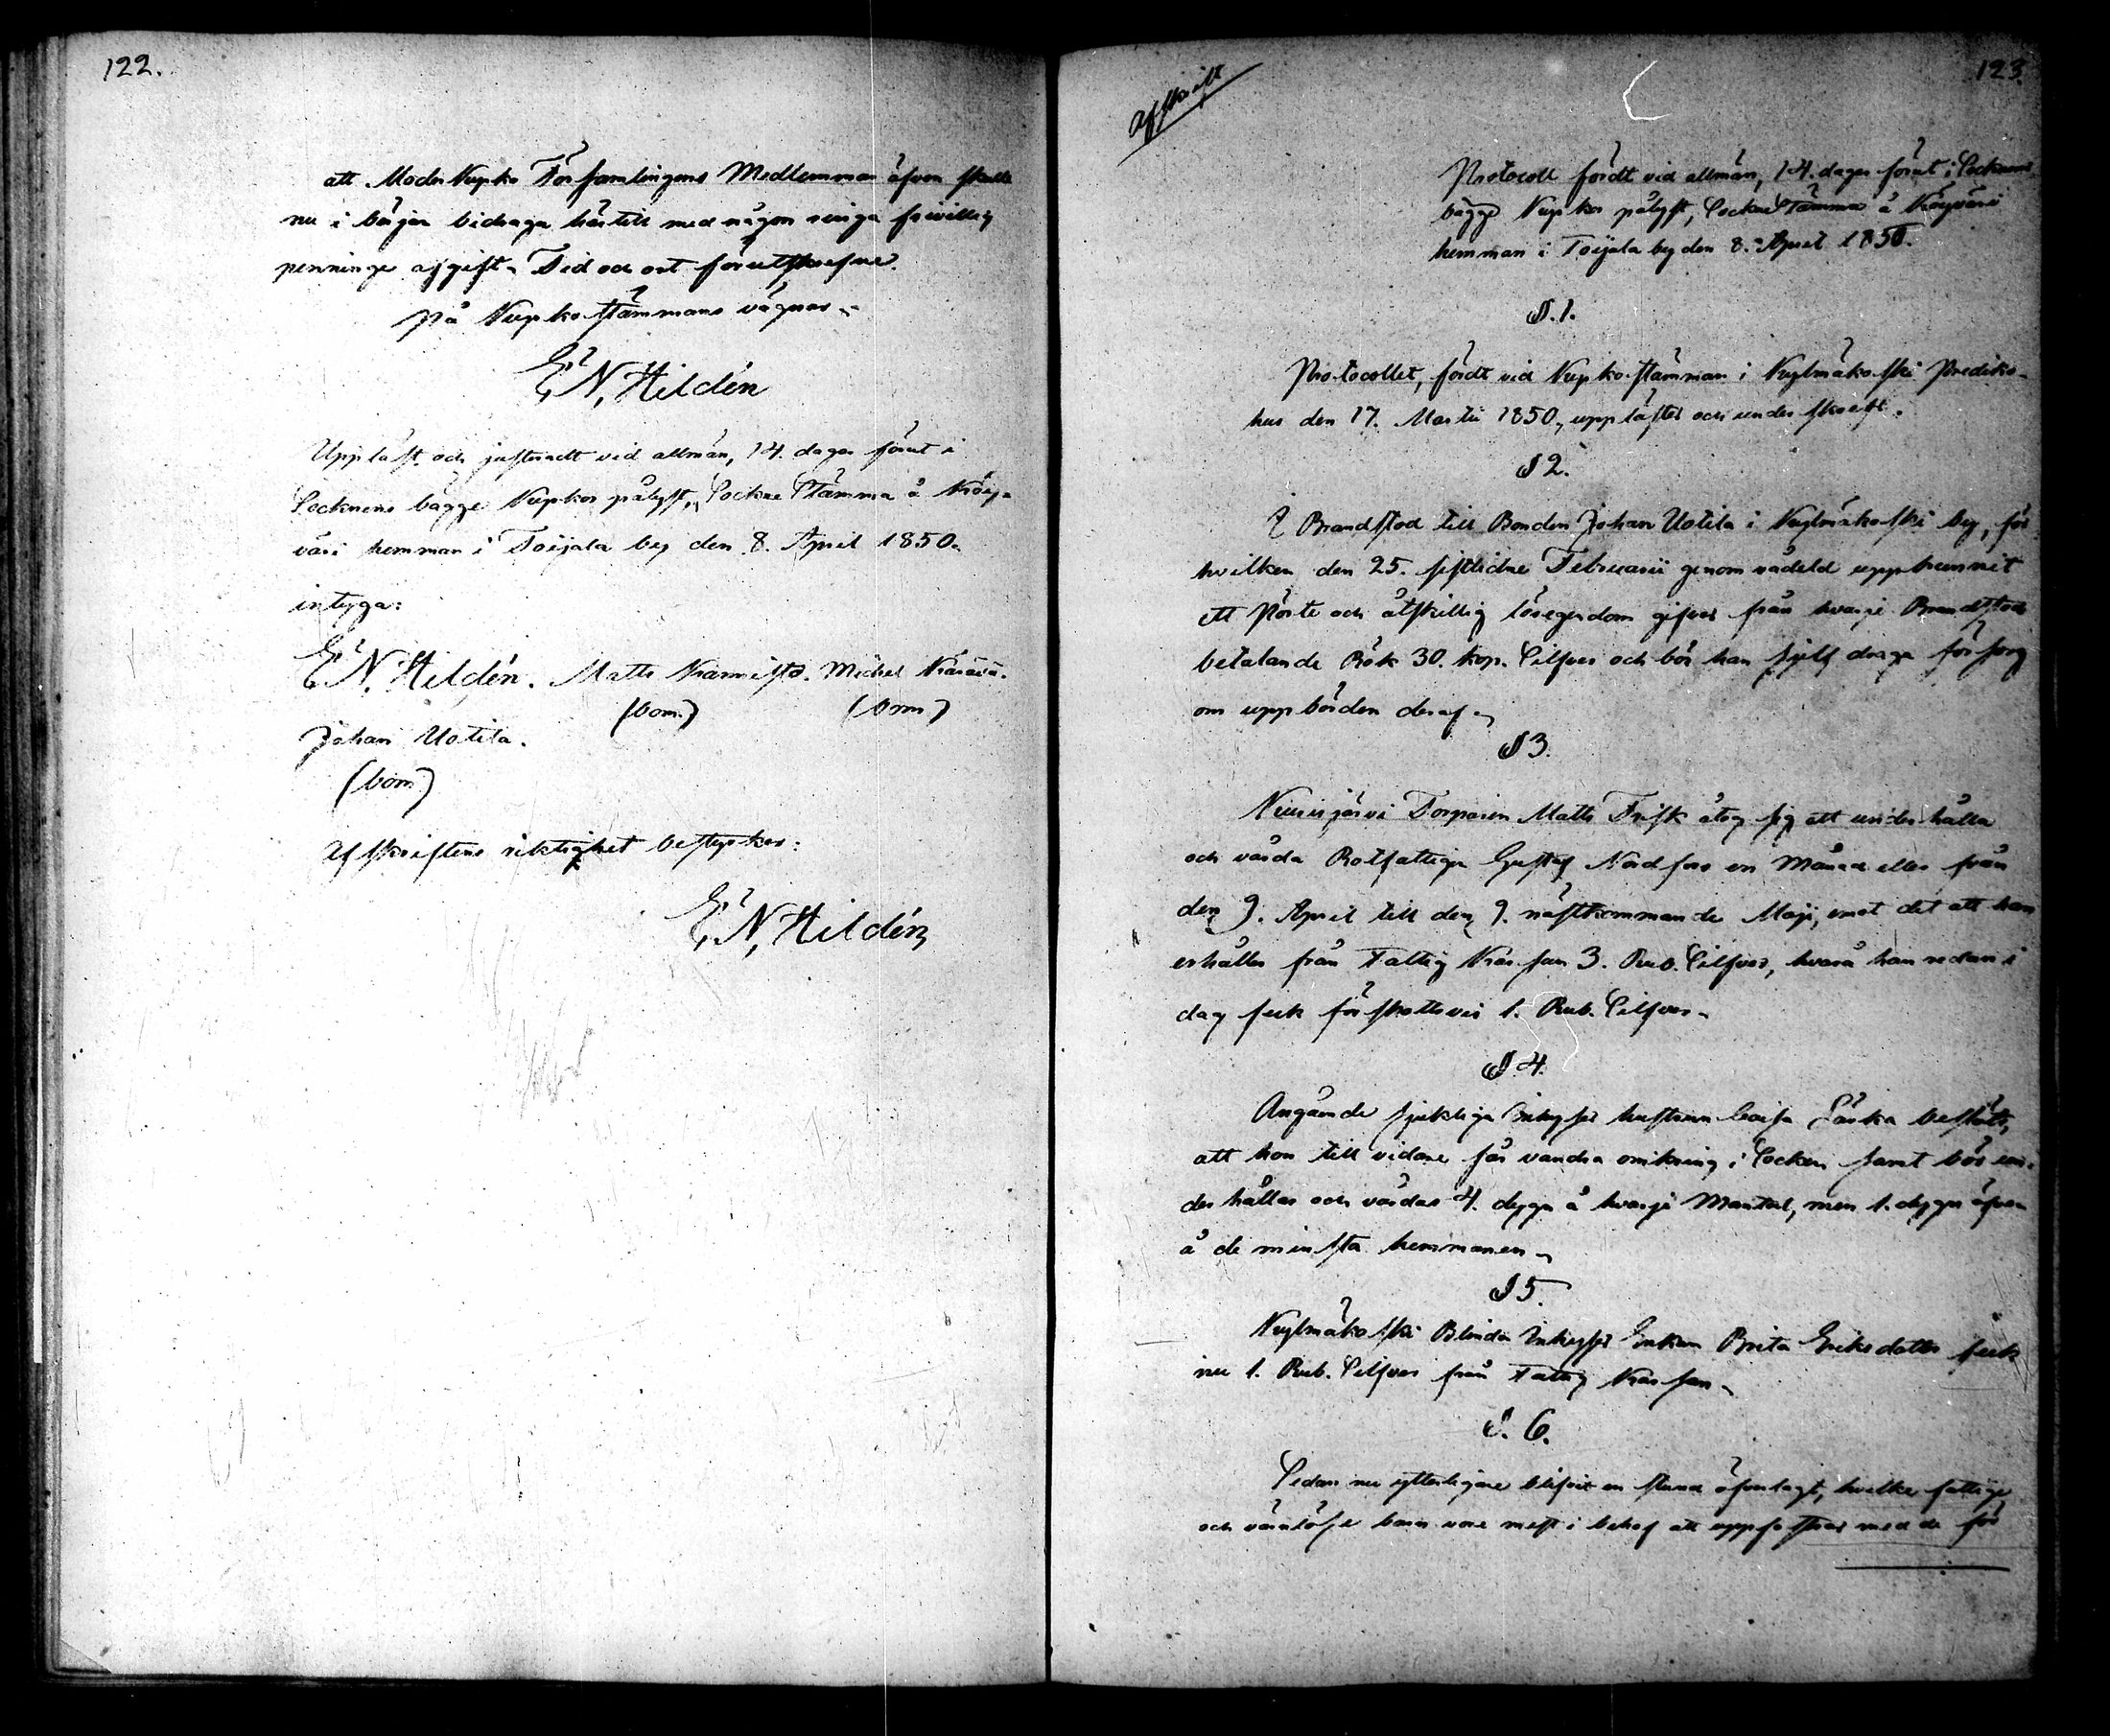 122.
att Moder Kyrko Församlingens Medlemmar äfven skulle
nu i början bidraga härtill med någon ringa frivillig
penninge afgift. Tid och ort förutskrefne.
På Kyrkostämmans vägnar
E. N. Hildén
Uppläst och justeradt vid allmän, 14. dagar förut i
Socknens bägge Kyrkor pålyst, Sockne Stämma å Köy-
väri hemman i Toijala by den 8. April 1850.
intyga:
E. N. Hildén. Matts Kannisto. Michel
(bom.) (bom)
Johan Uotila.
(bom)
Afskriftens riktighet bestyrker:
E. N. Hildén
123.
Afskrift
Protocoll fördt vid allmän, 14. dagar förut i Socknens
bägge Kyrkor pålyst, Sockne Stämma å Köyväri
hemman i Toijala by den 8. April 1850.
§. 1.
Protocollet, fördt vid Kyrkostämman i Kylmäkoski Prediko-
hus den 17. Martii 1850, upplästes och underskrefs.
§ 2.
I Brandstod till Bonden Johan Uotila i Kylmäkoski by, för
hvilken den 25. sistlidne Februarii genom vådeld uppbrunnit
ett Pörte och åtskillig lösegendom gifves från hvarje Brandstod
betalande Rök 30. kop. Silfver och bör han sjelf draga försorg
om uppbörden deraf.
§ 3.
Niinisjärvi Torparen Matts Frisk åtog sig att underhålla
och vårda Rotfattiga Gustaf Nordfors en Månad eller från
den 9. April till den 9. nästkommande Maji, emot det att han
erhåller från Fattig Kassan 3. Rub. Silfver, hvaraf han redan i
dag feck förskottsvis 1. Rub. Silfver.
§. 4.
Angående sjukliga Inhyses hustrun Caisa Laska beslöts,
att hon till vidare får vandra omkring i Socken samt bör un-
derhållas och vårdas 4. dygn å hvarje Mantal, men 1. dygn äfven
å de minsta hemmanen.
§ 5.
Kylmäkoski Blinda Inhyses Enkan Brita Eriksdotter feck
nu 1. Rub. Silfver från Fattig Kassan.
§. 6.
Sedan nu ytterligare blifvit en stund öfverlagt, hvilka fattiga
och värnlösa barn vore mest i behof att uppfostras med de för